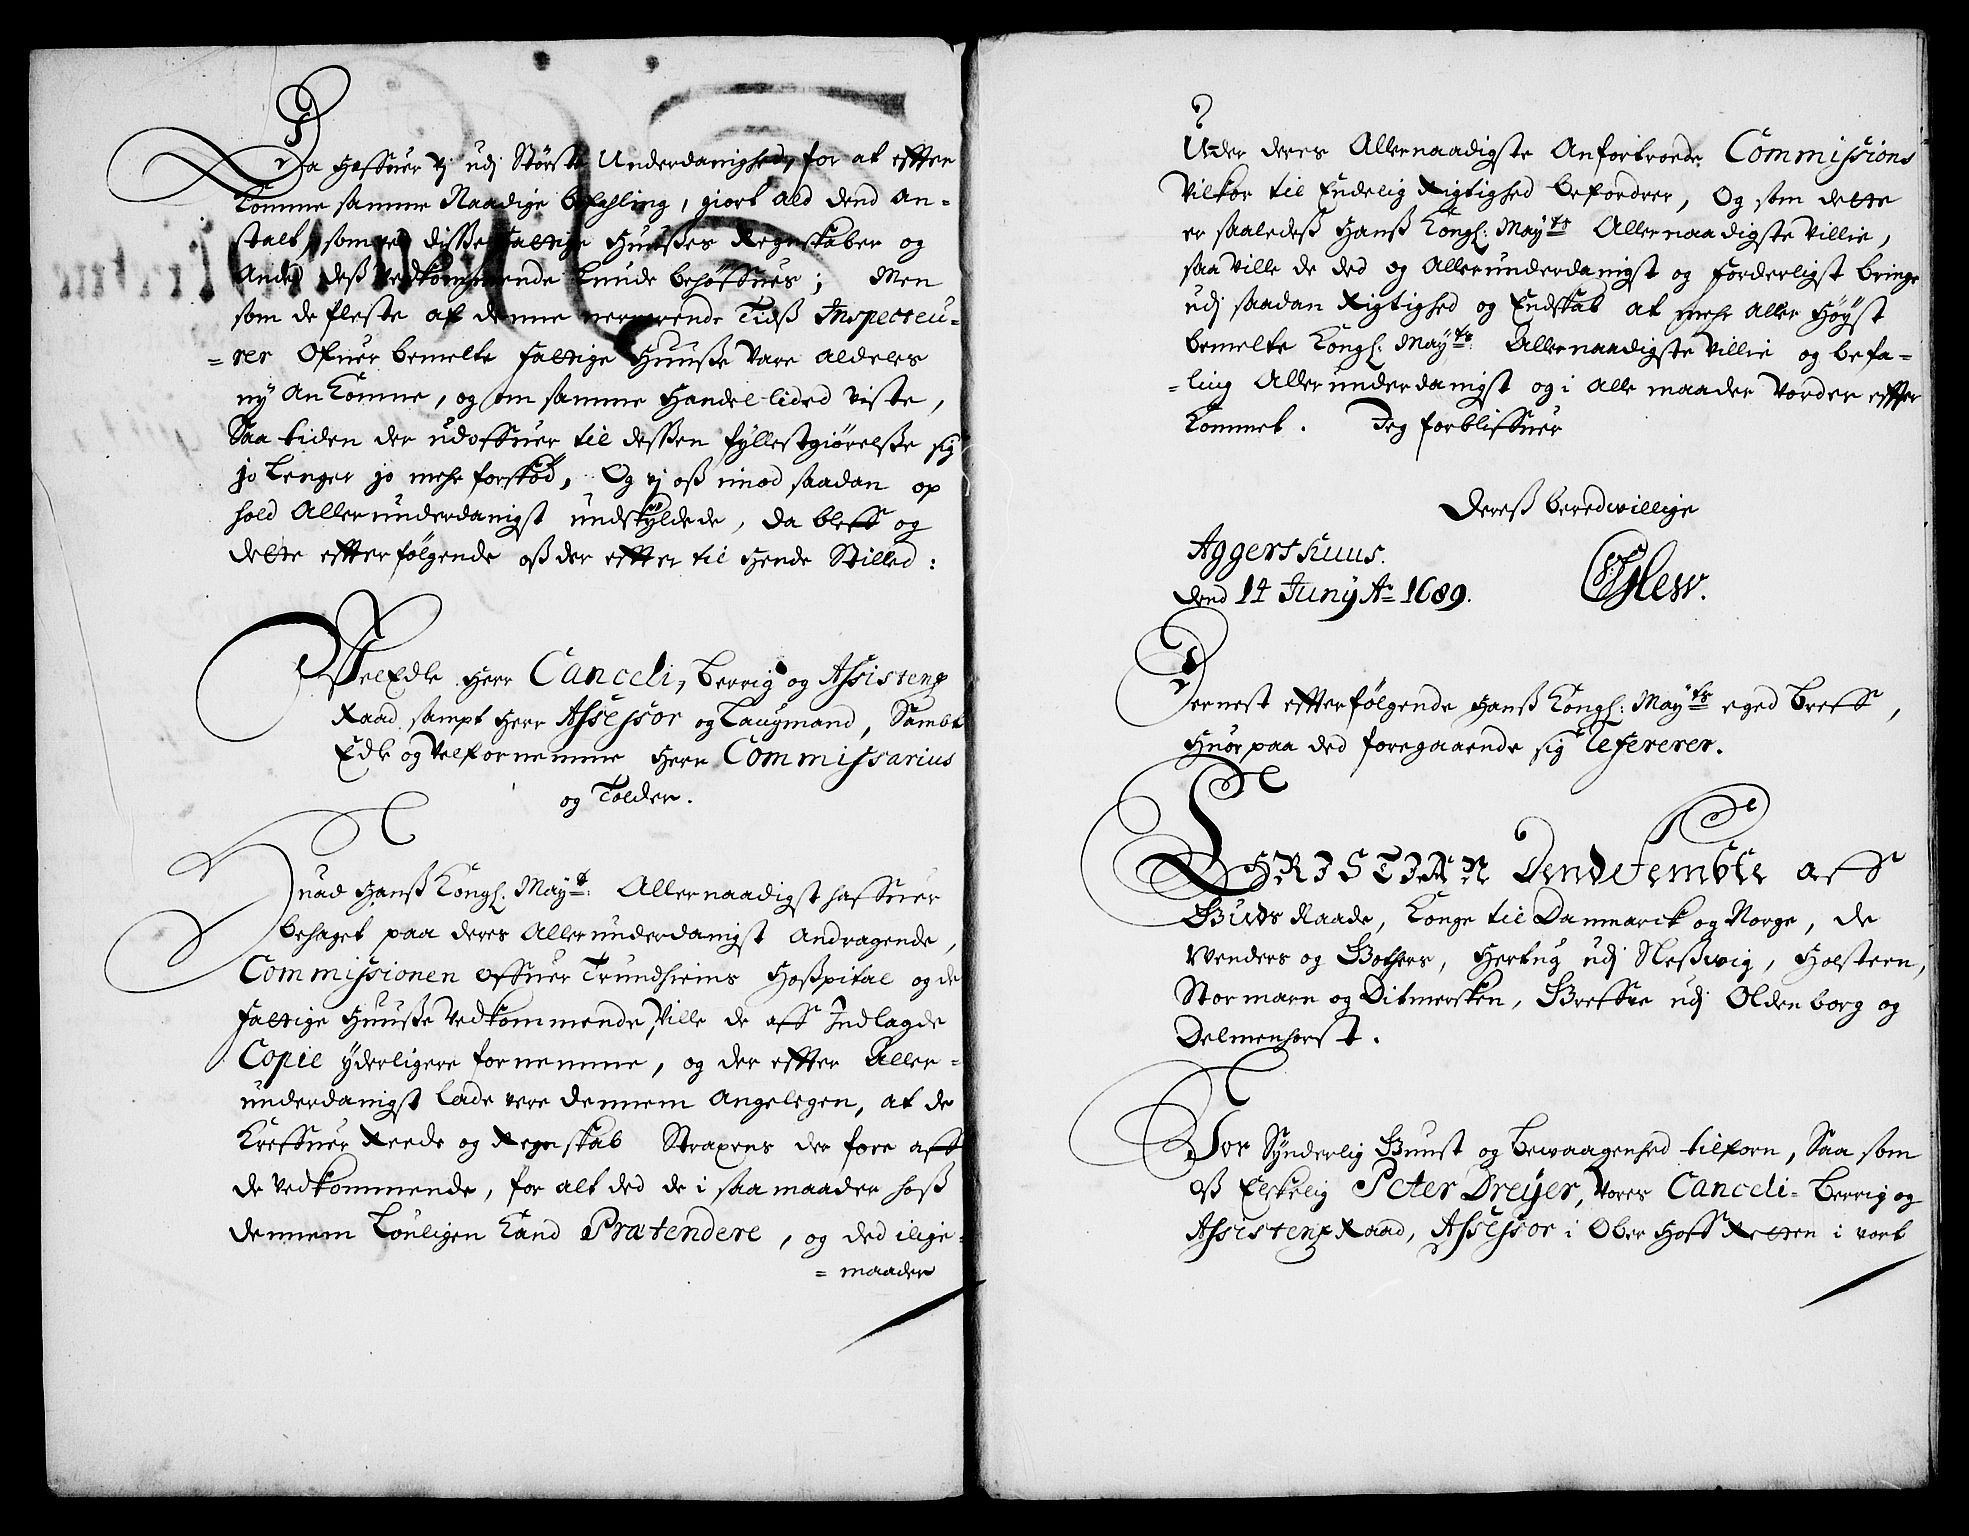 Da haffuer vj udj Største Underdanighed, for at effter
komme samme Naadige befahling, giort ald dend an-
stalt, som ved disse fattige Huußes Regnskaber og
Anded deß vedkommende kunde behøffues; Men
som de fleste af denne nerverende Tidß Inspecteu-
=rer Ofuer bemelte fattige Huuße vare aldeles
ny ankomne, og om samme Handel lided viste,
Saa tiden der udoffuer til dessen fyllestgiørelße sig
jo lenger jo mehr forskød, Og vj oß imod saadan op
hold Allerunderdanigst undskyldede, da bleff og
dette effterfølgende oß der effter til Hende Stilled:
VelEdle Herr Canceli, Berrig og Assistentz
Raad, sampt Herr Assessor og Laugmand, Sambt
Edle og velfornemme Herr Commissarius
og Tolder.
Huad Hanß Kongl: Mayts: Allernaadigst haffuer
behaget paa deres Allerunderdanigst Andragende,
Commissionen offuer Trundheims Hoßpital og de
fattige Huuße vedkommende, Ville de aff Indlagde
Copie yderligere fornemme, og der effter Aller-
underdanigst lade vere dennem angelegen, at de
kreffuer Reede og Regnskab Straxens der fore aff
de vedkommende, for alt ded de i saa maader hoß
dennem louligen kand Prætendere, og ded ilige-
=maader
Under deres Allernaadigste Anfortroede Commissions
vilkor til Endelig Rigtighed befordrer, Og som dette
er saaledeß Hanß Kongl: Mayts Allernaadigste villie,
saa ville de ded og Allerunderdanigst og forderligst bringe
udj saadan Rigtighed og Endskab at mehr aller Høyst
bemelte Kongl: Mayts: Allernaadigste villie og befa-
=ling Allerunderdanigst og i alle maader vorder effter
kommet. Jeg forbliffuer
Dereß beredwillige
Aggershuus.
dend 14 Juny Ao 1689.
Dernest effterfølgende Hanß Kongl: Mayts eged breff,
Huor paa ded foregaaende sig refererer.
CHRISTIAN Dend Fembte aff
Guds Naade, Konge til Danmarck og Norge, de
Wenders og Gothers, Hertug udj Sleßwig, Holsteen,
Stormarn og Ditmersken, Greffve udj Oldenborg og
Delmenhorst.
Vor Synderlig Gunst og bewaagenhed tilforn, Saa som
oß Elskelig Peter Dreyer, Vores Canceli- Berrig og
Assistentz Raad, Assessor i Ober Hoff Retten i vort